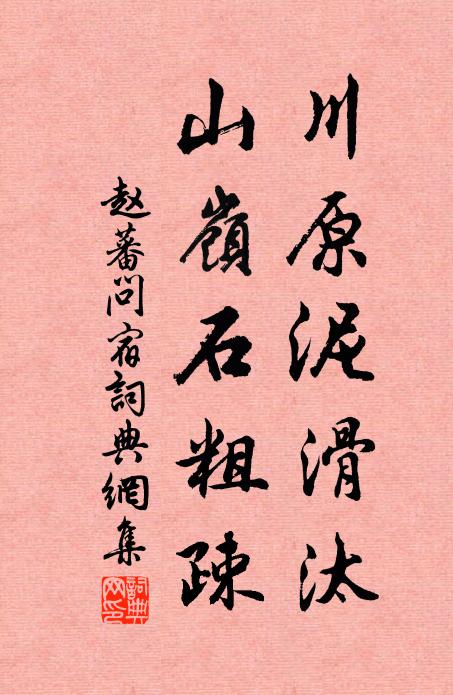 川原泥滑汰
山嶺石粗疎
赵蕃問宿詞典網集
詞典
网印